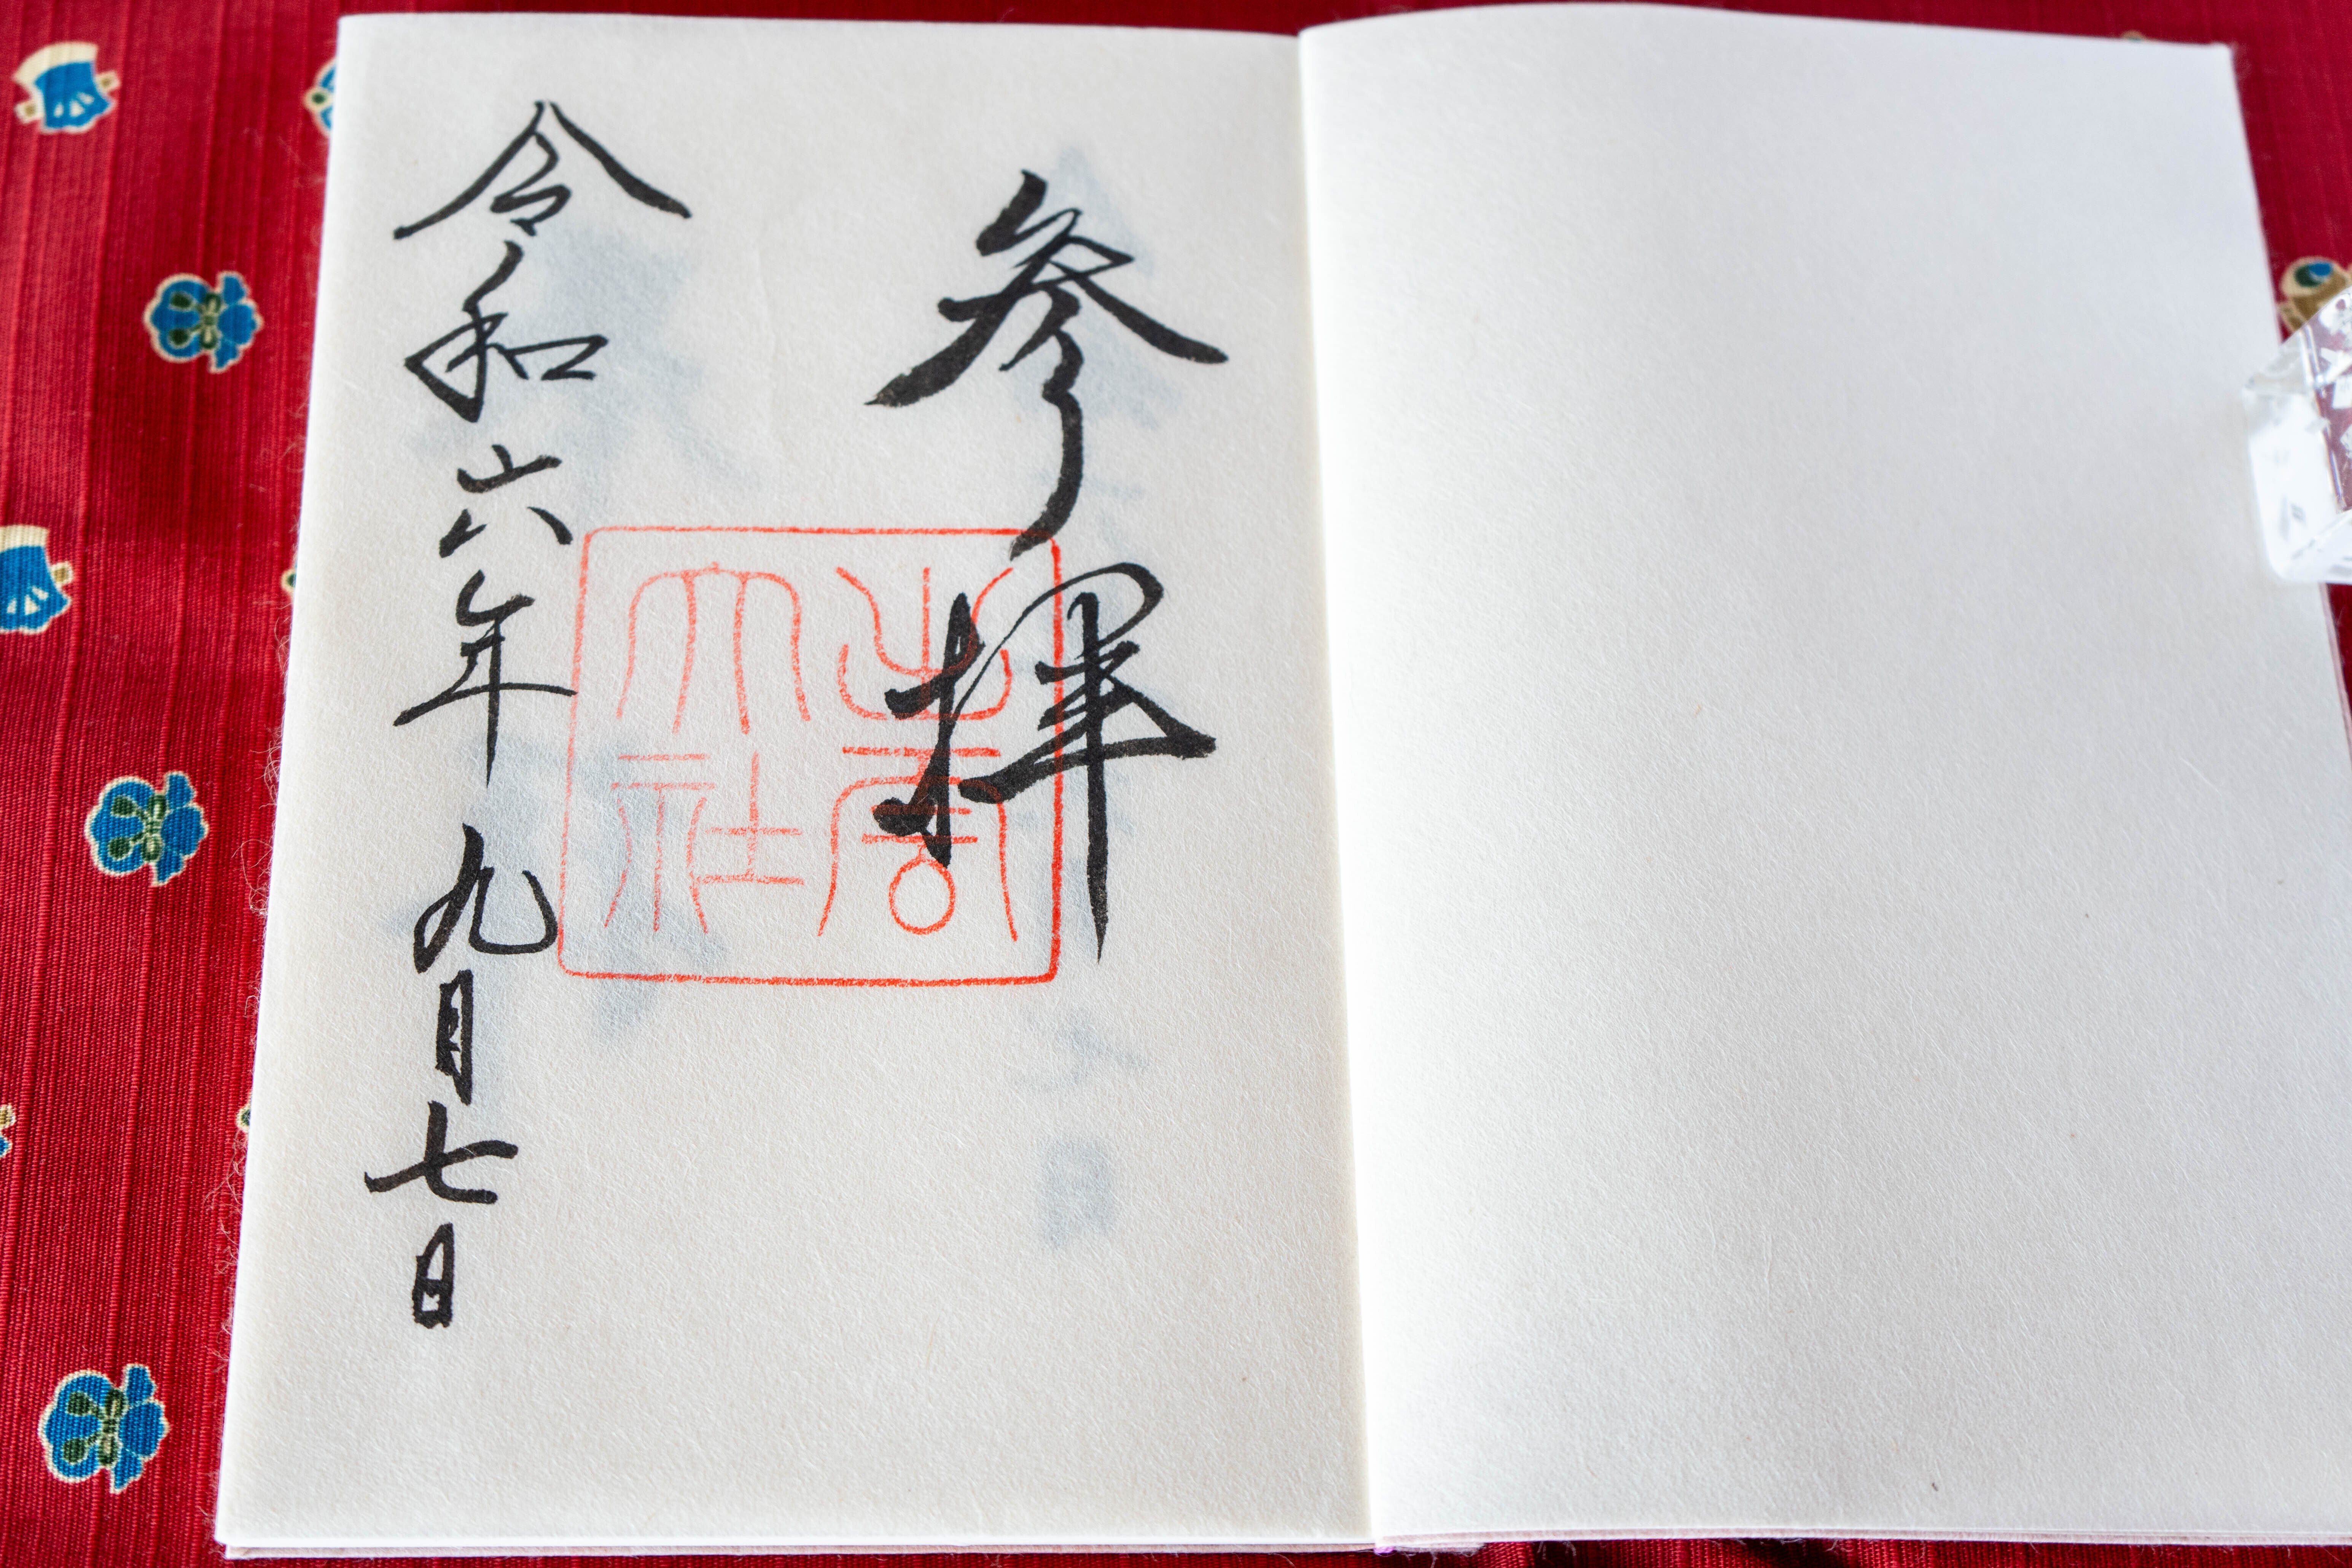 参拝
出雲
大社
令和六年九月七日